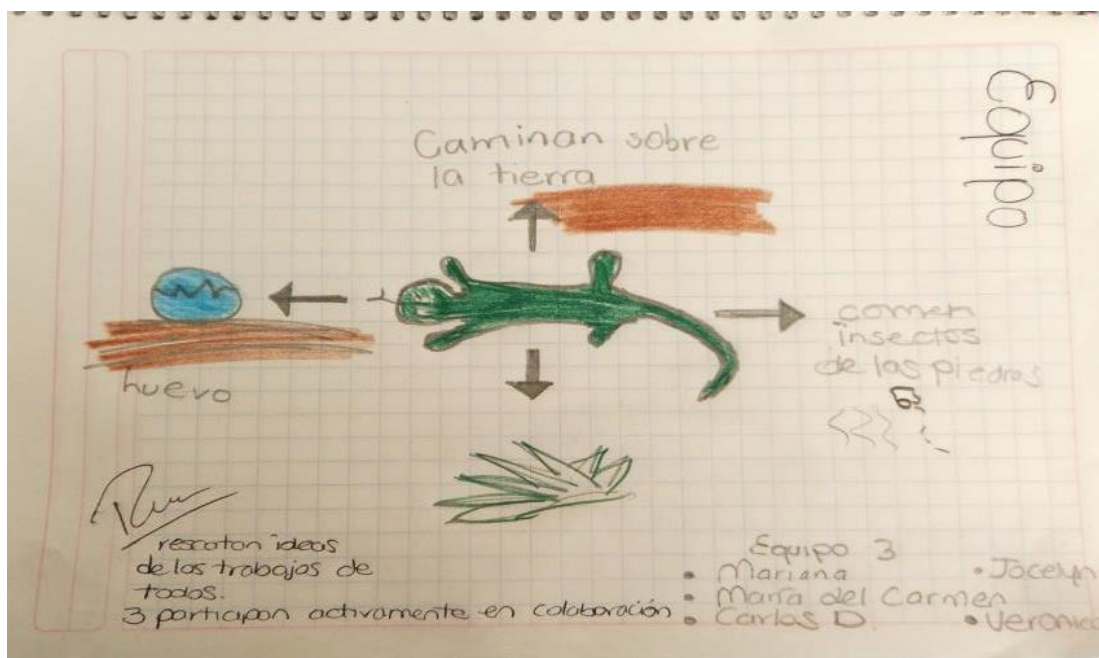 Equipo
Caminan sobre
la tierra
huevo
comen
insectos
de las piedras
rescatan ideas
de los trabajos de
todos.
3 participan activamente en colaboración
Equipo 3
• Mariana
• María del Carmen
• Carlos D.
• Jocelyn
• Veronica